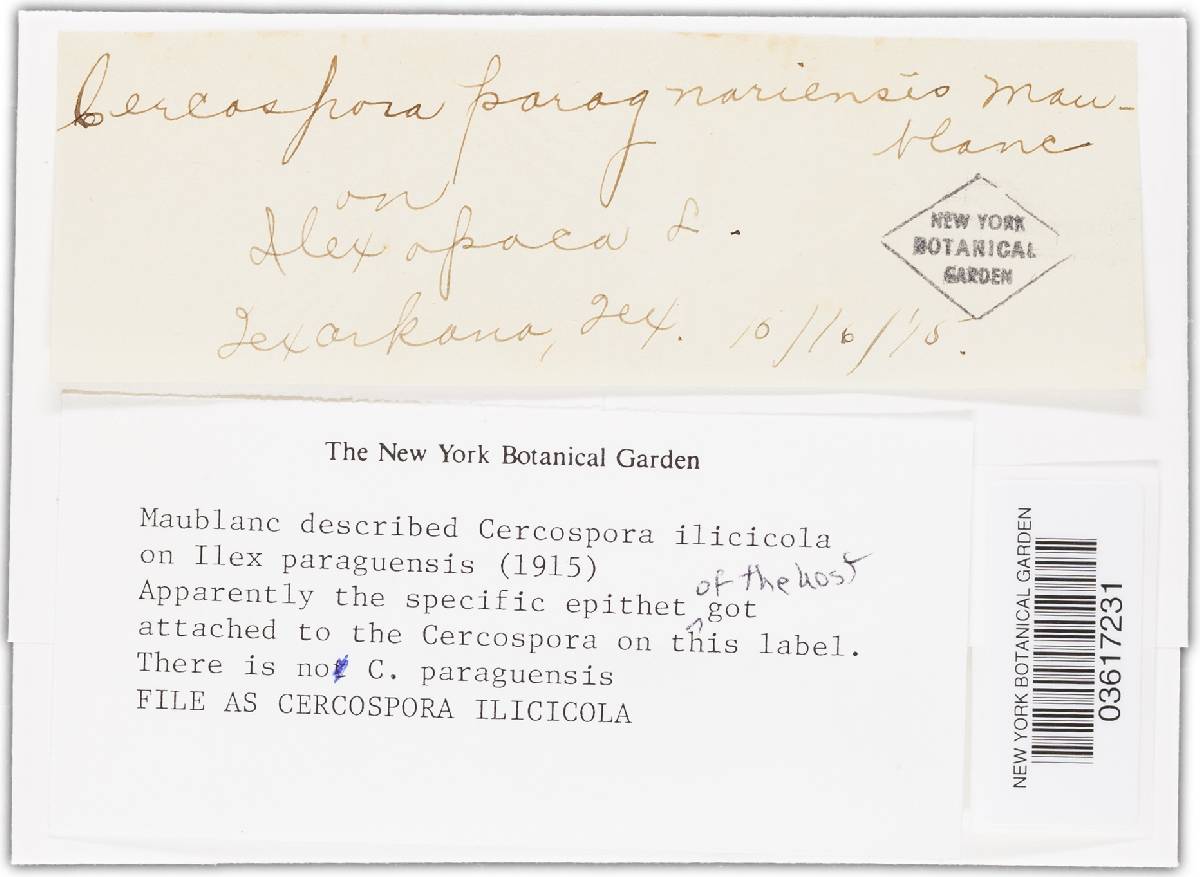 Cercospora paragnariensis Mau-
blanc
on
Ilex opaca L.
Texarkana, Tex. 10/16/15.
NEW YORK
BOTANICAL
GARDEN
The New York Botanical Garden
Maublanc described Cercospora ilicicola
on Ilex paraguensis (1915)
of the host
Apparently the specific epithet got
attached to the Cercospora on this label.
There is no C. paraguensis
FILE AS CERCOSPORA ILICICOLA
NEW YORK BOTANICAL GARDEN
03617231